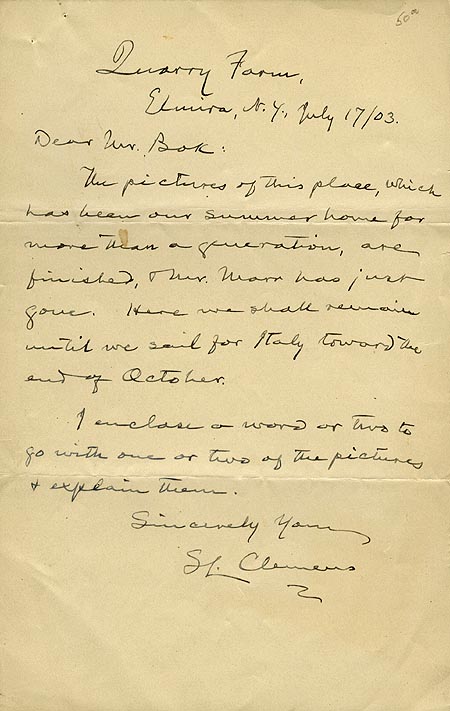 50.00
Quarry Farm,
Elmira, N.Y., July 17/03.
Dear Mr. Bok:
The pictures of this place, which
has been our summer home for
more than a generation, are
finished, & Mr. Marr has just
gone. Here we shall remain
until we sail for Italy toward the
end of October.
I enclose a word or two to
go with one or two of the pictures
& explain them.
Sincerely Yours
SL Clemens